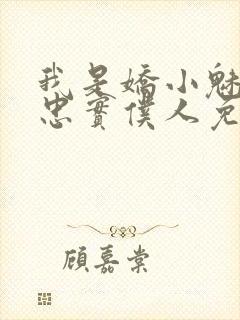 我是嬌小魅
忠實僕人兒
顧嘉棠